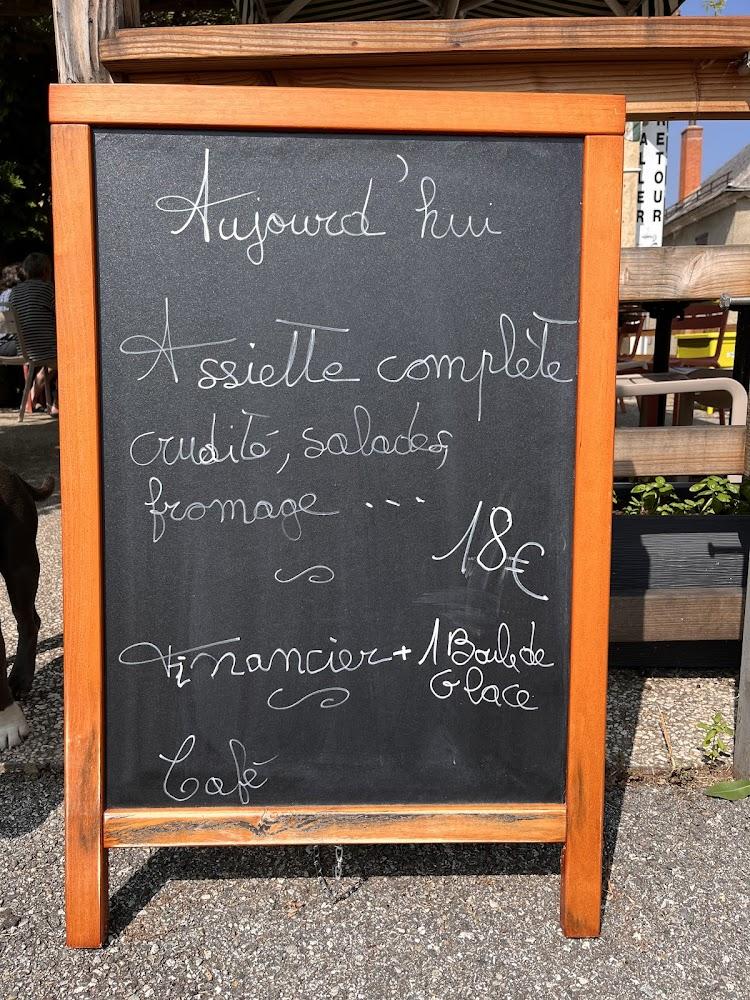 Aujourd'hui
Assiette complète
crudité, salades,
fromage ...
18€
Financier + 1 Boule de
Glace
Café
ALLER
RETOUR